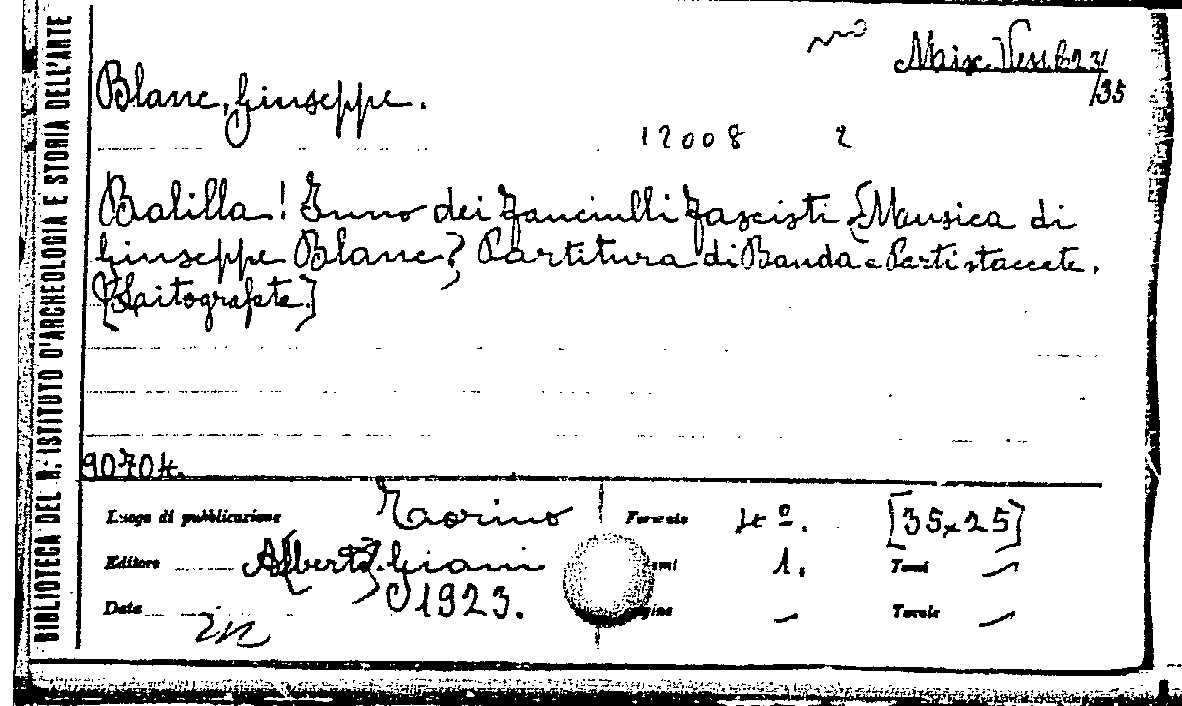 BIBLIOTECA DEL R. ISTITUTO D'ARCHEOLOGIA E STORIA DELL'ARTE
Misc. Vess. b23/
/35
Blanc, Giuseppe.
12008 2
Balilla! Inno dei fanciulli fascisti [Mausica di
Giuseppe Blanc] Partitura di Banda e Parti staccate.
[Litografate.]
90704.
Luogo di pubblicazione Torino Formato 4º. [35x25]
Editore A[lberto] Giani 1. Tomi –
Data 1923. – Tavole –